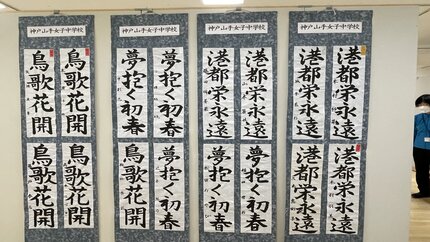 神戸山手女子中学校
港都栄永遠
港都栄永遠
港都栄永遠
港都栄永遠
神戸山手女子中学校
港都栄永遠
港都栄永遠
夢抱く初春
夢抱く初春
神戸山手女子中学校
夢抱く初春
夢抱く初春
夢抱く初春
夢抱く初春
神戸山手女子中学校
鳥歌花開
鳥歌花開
鳥歌花開
鳥歌花開